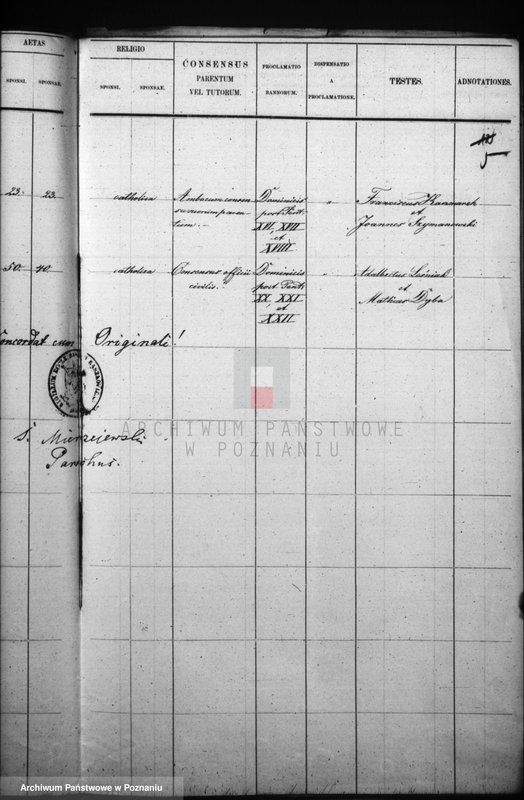 AETAS
RELIGIO
CONSENSUS
PARENTUM
VEL TUTORUM.
PROCLAMATIO
BANNORUM.
DISPENSATIO
A
PROCLAMATIONE.
TESTES.
ADNOTATIONES.
SPONSI.
SPONSAE.
SPONSI.
SPONSAE.
5
23.
23.
catholica
Amborum
tium.
Dominicis
post Pent.
XVI, XVII
et
XVIII
"
Franciscus
et
Joannes Szymanowski
50.
40.
catholica
Consensus officii
civilis.
Dominicis
post Pent.
XX, XXI
et
XXII
"
Adalbertus Leśniak
et
Mathias Dyba
oncordat cum Originali!
S. Mierzejewski
Parochus.
ARCHIWUM PAŃSTWOWE
W POZNANIU
Archiwum Państwowe w Poznaniu